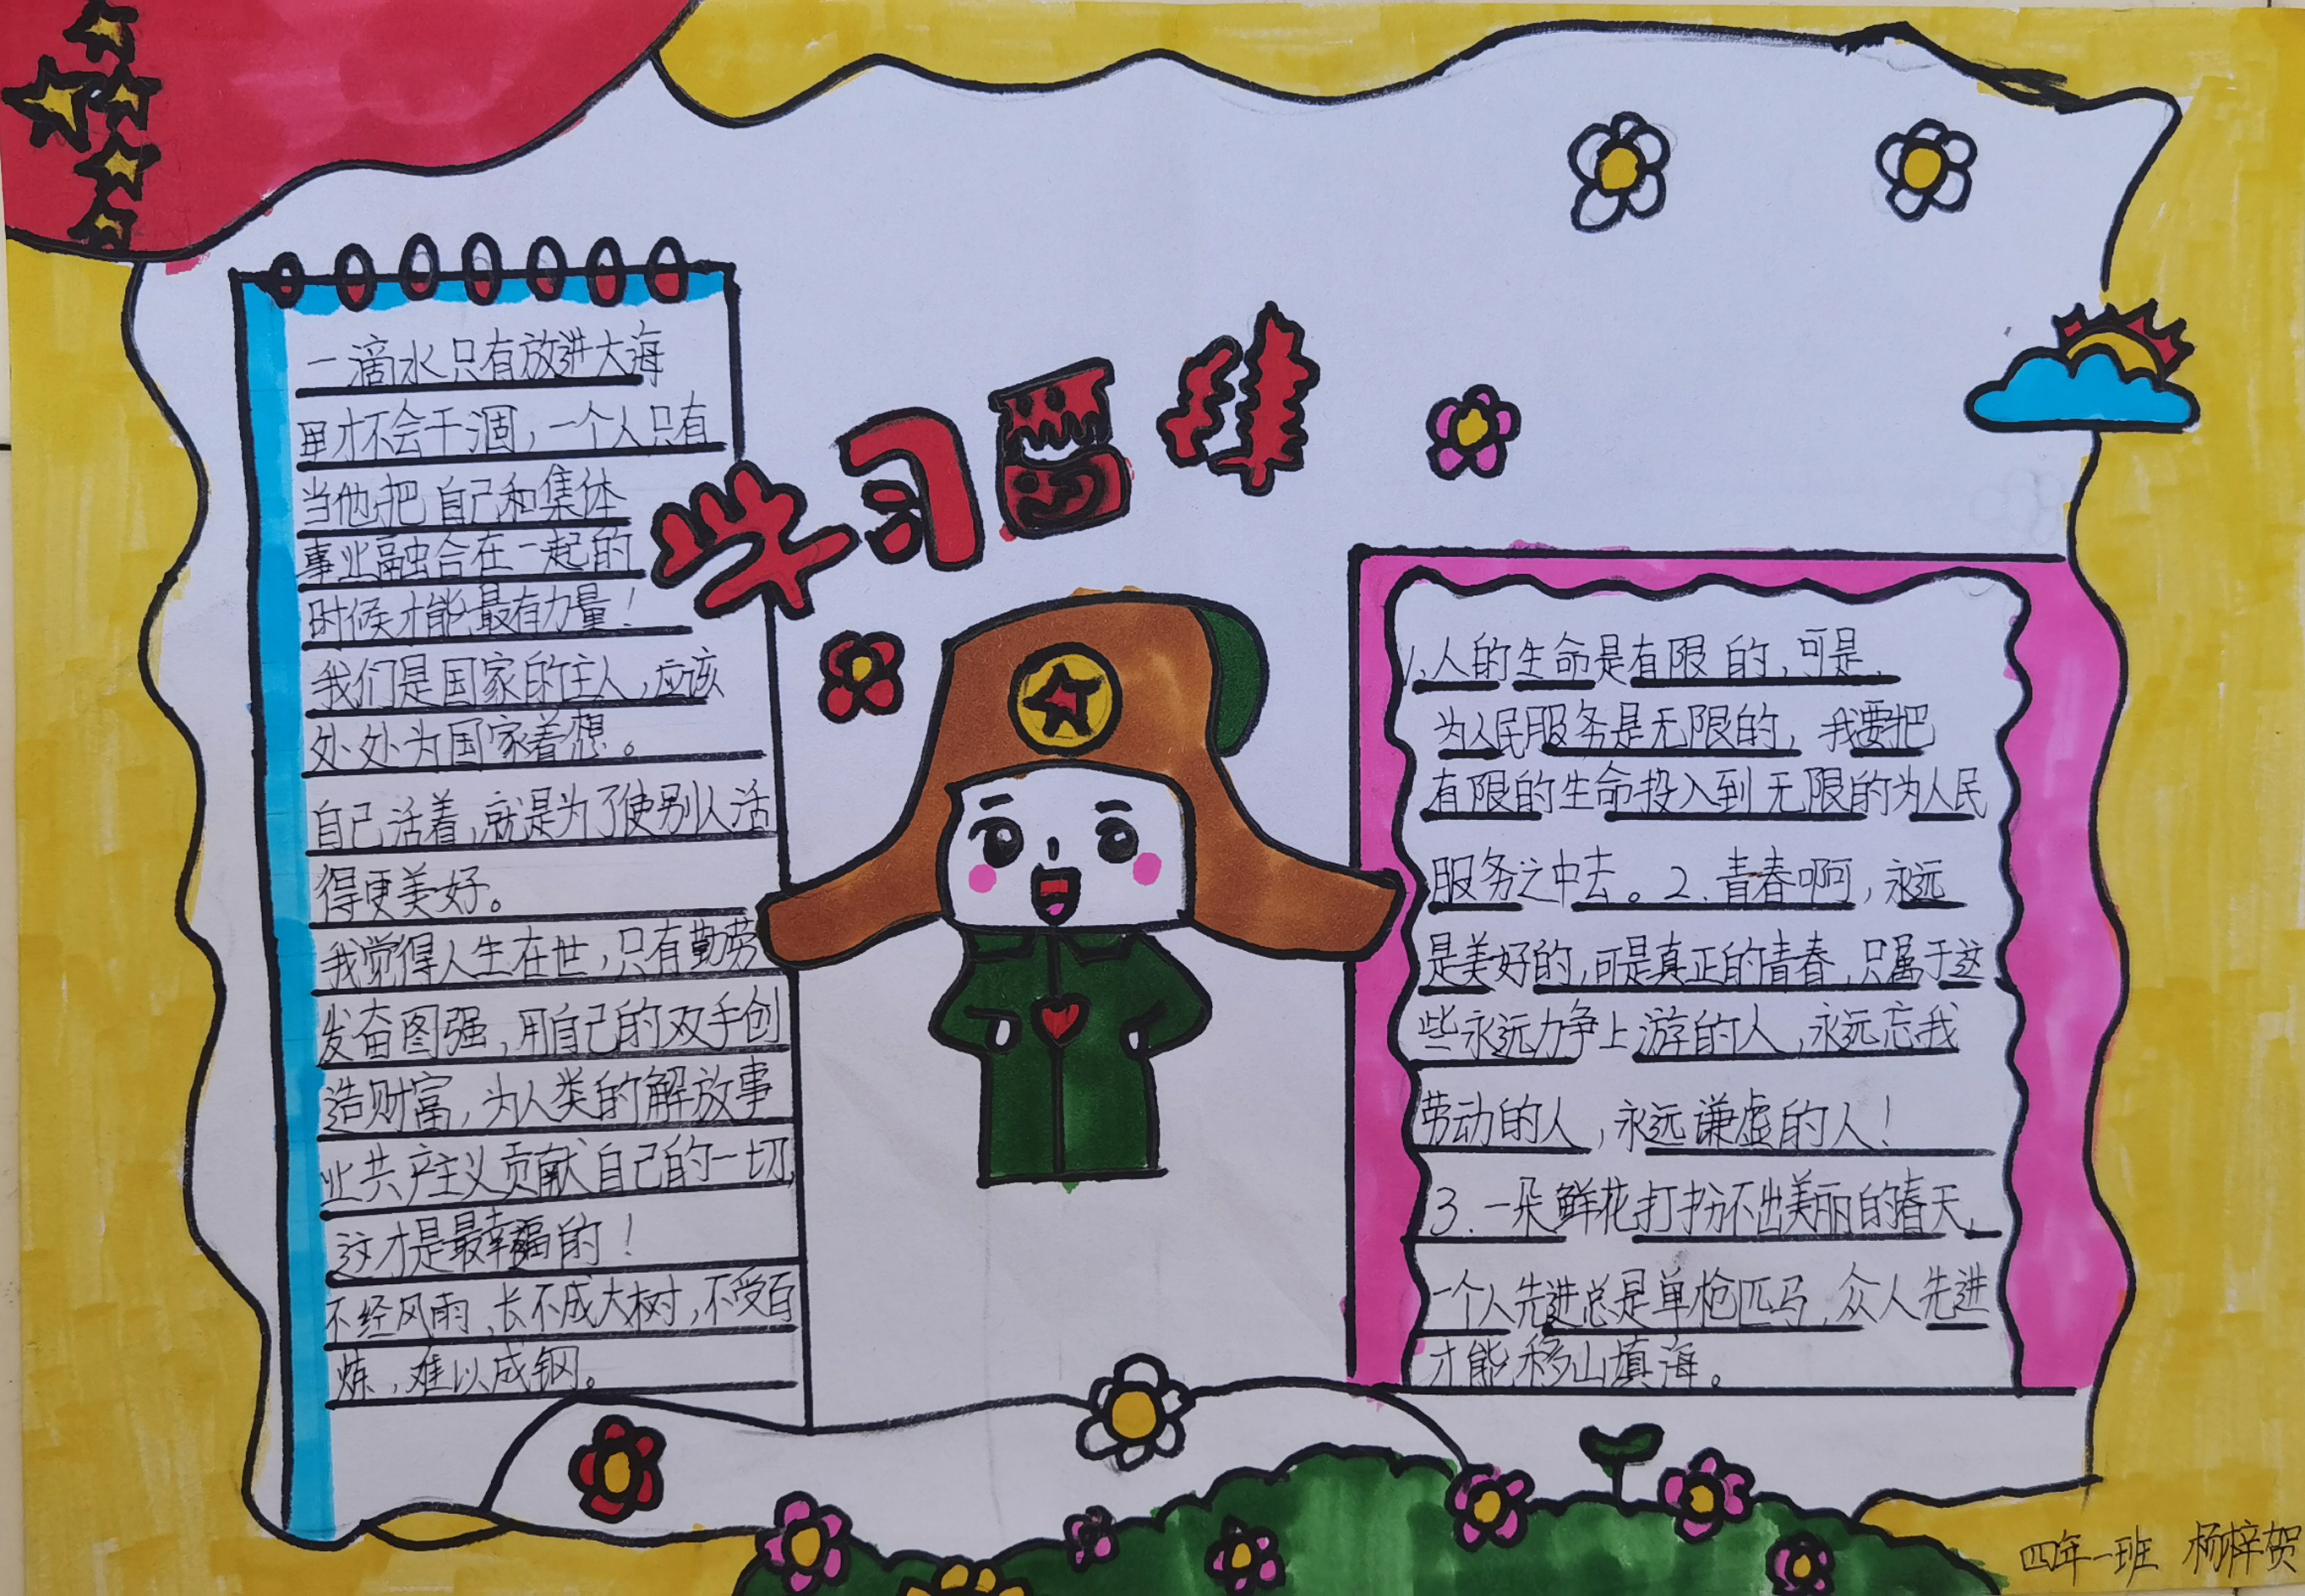 学习雷锋
一滴水只有放进大海
里才不会干涸，一个人只有
当他把自己和集体
事业融合在一起的
时候才能最有力量！
我们是国家的主人，应该
处处为国家着想。
自己活着，就是为了使别人活
得更美好。
我觉得人生在世，只有勤劳
发奋图强，用自己的双手创
造财富，为人类的解放事
业共产主义贡献自己的一切，
这才是最幸福的！
不经风雨、长不成大树，不受百
炼，难以成钢。
1、人的生命是有限的，可是、
为人民服务是无限的，我要把
有限的生命投入到无限的为人民
服务之中去。2.青春啊，永远
是美好的，可是真正的青春，只属于这
些永远力争上游的人，永远忘我
劳动的人，永远谦虚的人！
3.一朵鲜花打扮不出美丽的春天、
一个人先进总是单枪匹马，众人先进
才能移山填海。
四年一班 杨梓贺